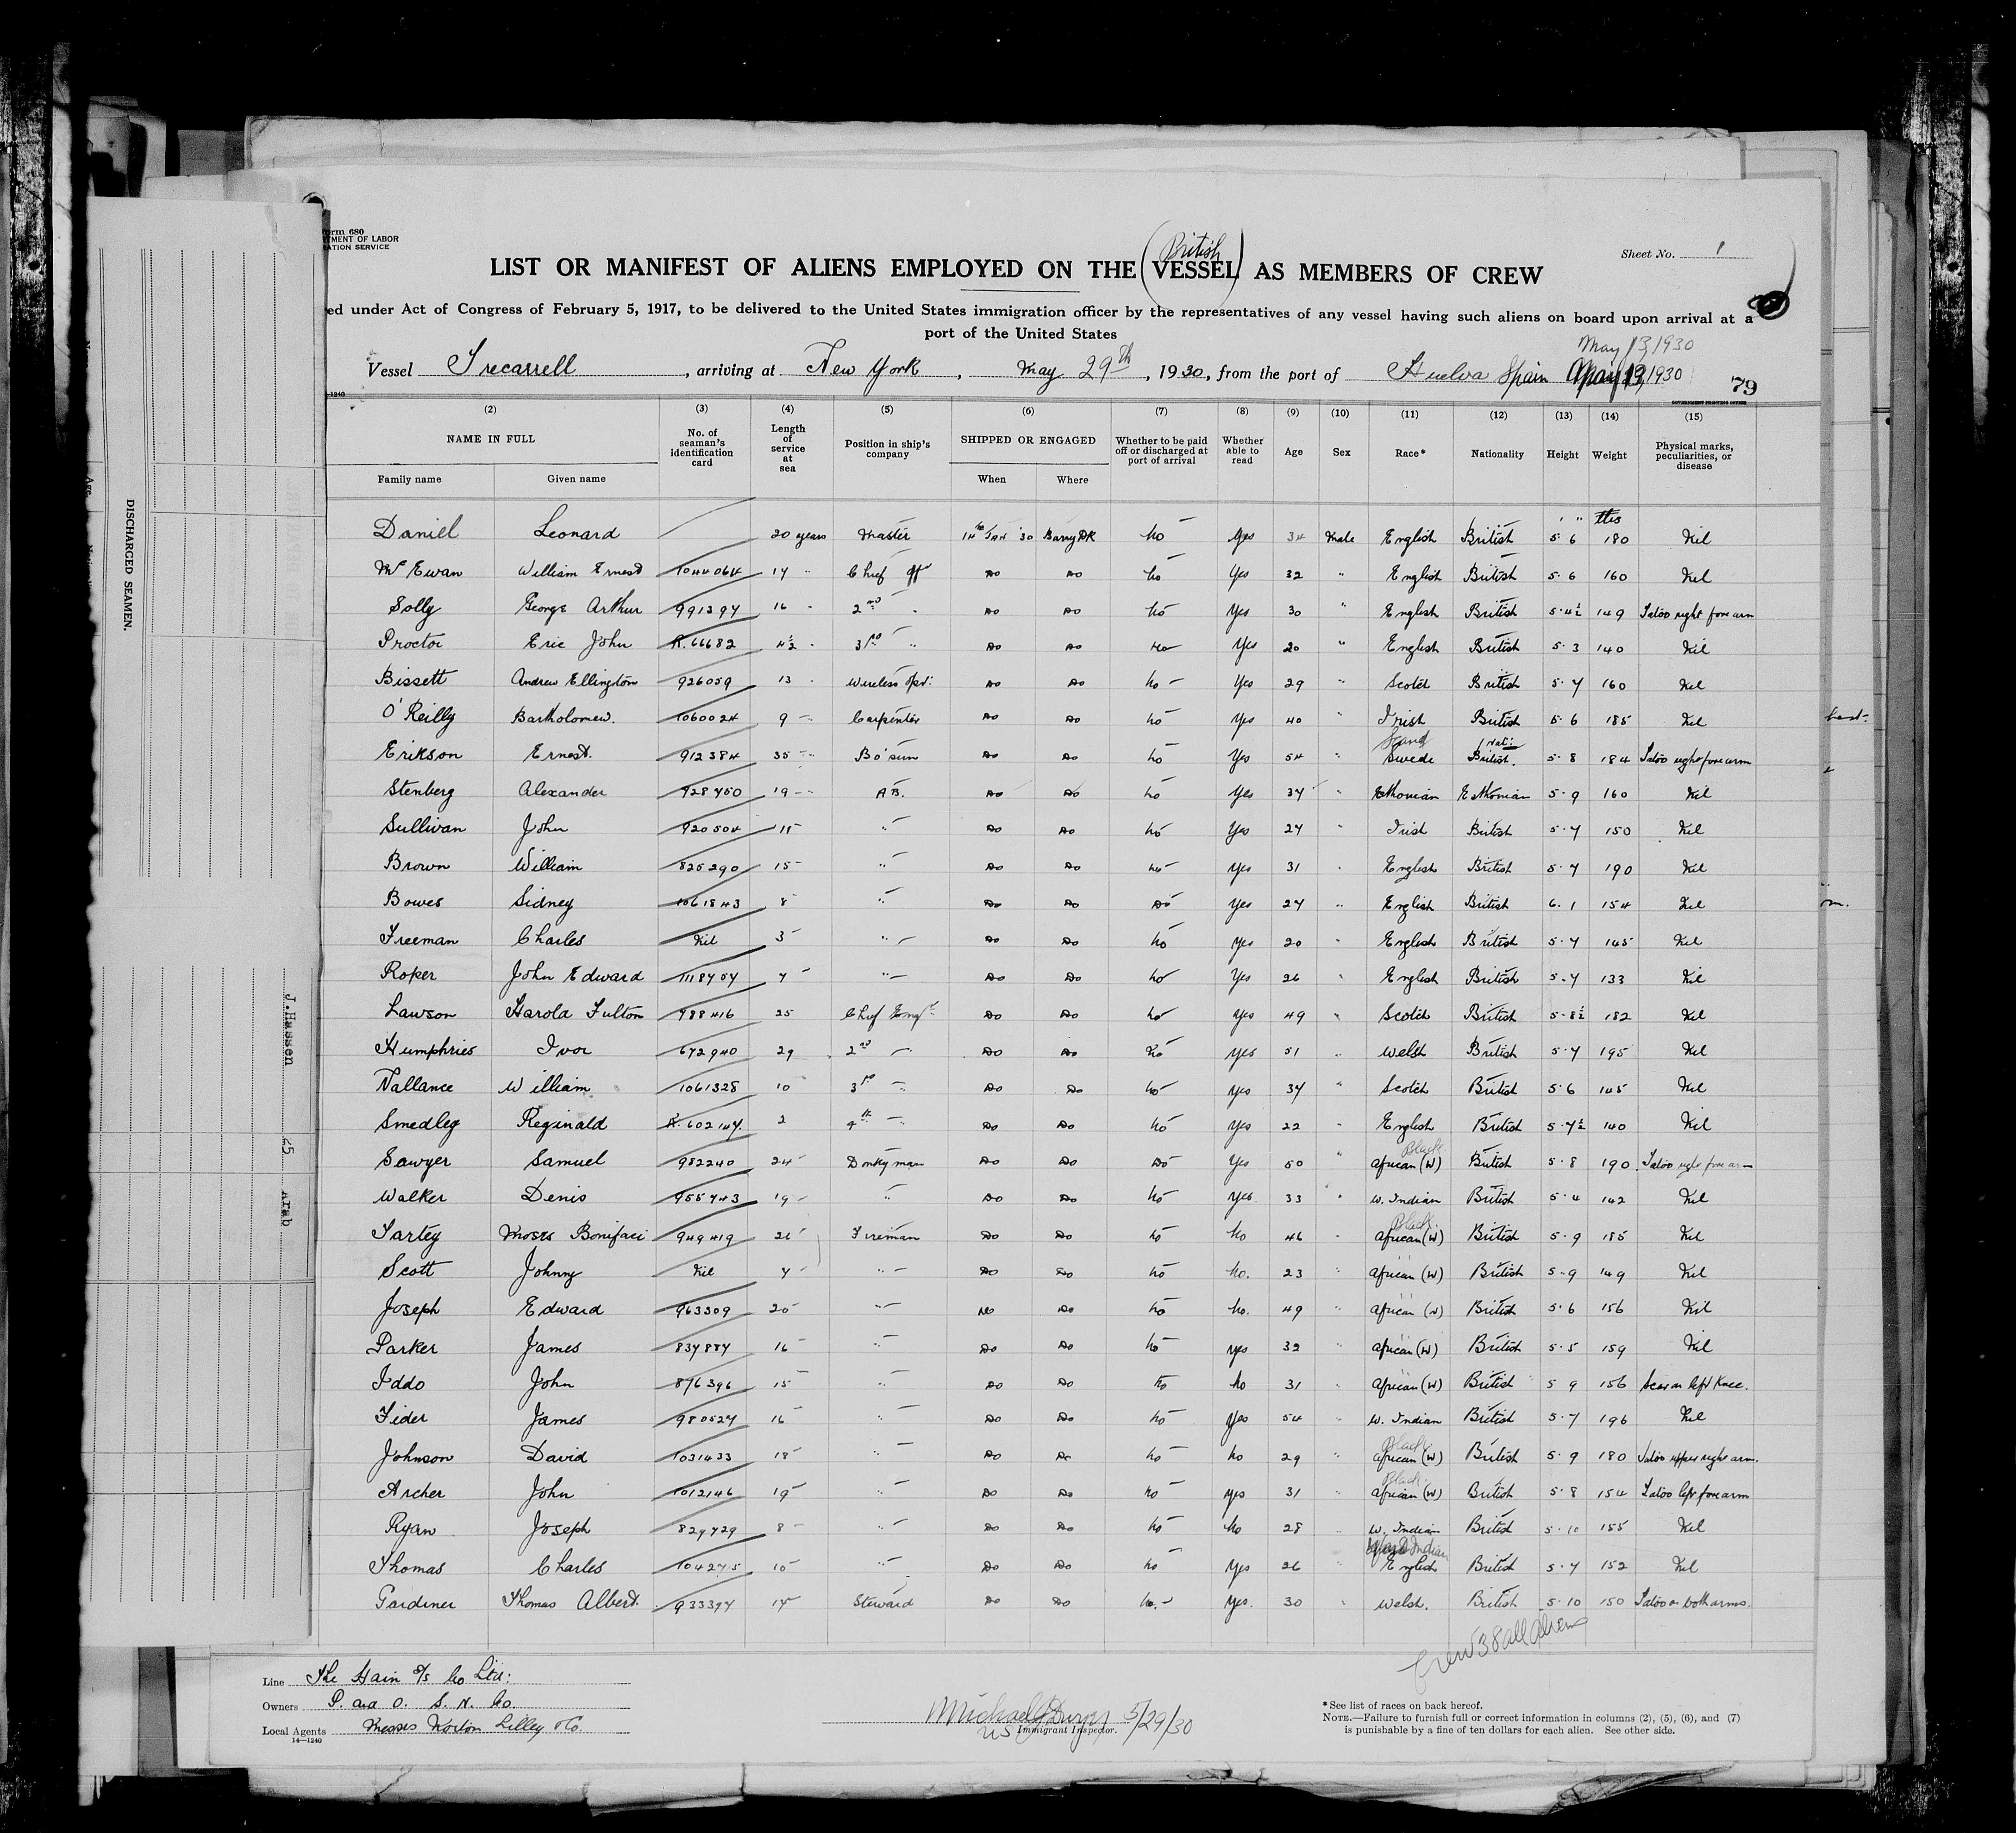 orm 680
TMENT OF LABOR
ATION SERVICE
Sheet No. 1
British
LIST OR MANIFEST OF ALIENS EMPLOYED ON THE (VESSEL) AS MEMBERS OF CREW
ed under Act of Congress of February 5, 1917, to be delivered to the United States immigration officer by the representatives of any vessel having such aliens on board upon arrival at a
port of the United States
May 13, 1930
Vessel Trecarrell, arriving at New York, May 29th, 1930, from the port of Huelva Spain 1930
79
(2) (3) (4) (5) (6) (7) (8) (9) (10) (11) (12) (13) (14) (15)
NAME IN FULL No. of seaman's identification card Length of service at sea Position in ship's company SHIPPED OR ENGAGED Whether to be paid off or discharged at port of arrival Whether able to read Age Sex Race* Nationality Height Weight Physical marks, peculiarities, or disease
Family name Given name When Where
Daniel Leonard 20 years Master 14th Jan '30 Barry Dk No Yes 34 Male English British 5 6 180 Nil
McEwan William Ernest 1044064 17 Chief Off Do Do No Yes 32 " English British 5.6 160 Nil
Solly George Arthur 991397 16 2nd Do Do No Yes 30 " English British 5.4½ 149 Tatoo right fore arm
Proctor Eric John R.66682 4½ 3rd " Do Do No Yes 20 " English British 5.3 140 Nil
Bissett Andrew Ellington 926059 13 Wireless Opr: Do Do No Yes 29 " Scotch British 5.7 160 Nil
O'Reilly Bartholomew. 1060024 9 Carpenter Do Do No Yes 40 " Irish British 5.6 185 Nil
Scand Nat:
Erikson Ernest. 912384 35 Bo'sun Do Do No Yes 54 " Swede British. 5.8 184 Tatoo right fore arm
Stenberg Alexander 928750 19 A.B. Do Do No Yes 37 " Esthonian Esthonian 5.9 160 Nil
Sullivan John 920504 " Do Do No Yes 27 " Irish British 5.7 150 Nil
Brown William 825290 15 " Do Do No Yes 31 " English British 5.7 190 Nil
Bowes Sidney 1061843 8 " Do Do Do Yes 27 " English British 6.1 154 Nil
Freeman Charles Nil 3 " Do Do No Yes 20 " English British 5.7 145 Nil
Roper John Edward 1118757 7 " Do Do No Yes 26 " English British 5.7 133 Nil
Lawson Harold Fulton 988416 25 Chief Engr Do Do No Yes 49 " Scotch British 5.8½ 182 Nil
Humphries Ivor 672940 29 2nd Do Do No Yes 51 " Welsh British 5.7 195 Nil
Vallance William 1061328 10 3rd Do Do No Yes 37 " Scotch British 5.6 145 Nil
Smedley Reginald R.602147 2 4th Do Do No Yes 22 " English British 5.7½ 140 Nil
Black
Sawyer Samuel 982240 24 Donkyman Do Do Do Yes 50 " African (W) British 5.8 190 Tatoo right fore arm
Walker Denis 955743 19 " Do Do No Yes. 33 " W. Indian British 5.4 142 Nil
Black
Tartey Moses Bonifaci 949419 Fireman Do Do No No 46 " African (W) British 5.9 185 Nil
Scott Johnny Nil 7 " Do Do No No. 23 " African (W) British 5.9 149 Nil
Joseph Edward 963309 20 " Do Do No No. 49 " African (W) British 5.6 156 Nil
Parker James 837887 16 " Do Do No Yes 32 " African (W) British 5.5 159 Nil
Iddo John 876396 15 " Do Do No No 31 " African (W) British 5 9 156 Scar on left Knee.
Fider James 980527 16 " Do Do No Yes 54 " W. Indian British 5.7 196 Nil
Black
Johnson David 1031433 18 " Do Do No No 29 " African (W) British 5.9 180 Tatoo upper right arm.
Black
Archer John 1012146 19 " Do Do No Yes 31 " African (W) British 5.8 154 Tatoo left fore arm
Ryan Joseph 829729 8 " Do Do No No 28 " W. Indian British 5.10 155 Nil
Indian
Thomas Charles 104275 10 " Do Do No Yes 26 " English British 5.7 152 Nil
Gardiner Thomas Albert 933397 Steward Do Do No. Yes. 30 " Welsh. British 5.10 150 Tatoo on both arms.
Crew 38 all aliens
Line The Hain S/S Co Ltd:
Owners P. and O. S. N. Co.
Local Agents Messrs Norton Lilley & Co.
14—1240
Michael Dwyer 5/29/30
US Immigrant Inspector.
*See list of races on back hereof.
NOTE.—Failure to furnish full or correct information in columns (2), (5), (6), and (7)
is punishable by a fine of ten dollars for each alien. See other side.
DISCHARGED SEAMEN.
Age
J.Hassen 25 Arab